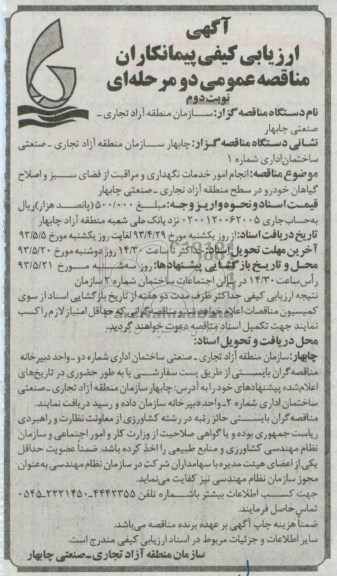 آگهی
ارزیابی کیفی پیمانکاران
مناقصه عمومی دو مرحله‌ای
نوبت دوم
نام دستگاه مناقصه گزار: سازمان منطقه آزاد تجاری ـ
صنعتی چابهار
نشانی دستگاه مناقصه گزار: چابهار سازمان منطقه آزاد تجاری ـ صنعتی
ساختمان اداری شماره ۱
موضوع مناقصه: انجام امور خدمات نگهداری و مراقبت از فضای سبز و اصلاح
گیاهان خودرو در سطح منطقه آزاد تجاری ـ صنعتی چابهار
قیمت اسناد و نحوه واریز وجه: مبلغ ۵۰۰/۰۰۰ (پانصد هزار) ریال
به حساب جاری ۰۲۰۰۱۲۰۰۶۲۰۰۵ نزد بانک ملی شعبه منطقه آزاد چابهار
تاریخ دریافت اسناد: از روز یکشنبه مورخ ۹۳/۴/۲۹ لغایت روز یکشنبه مورخ ۹۳/۵/۵
آخرین مهلت تحویل اسناد: حداکثر تا ساعت ۱۴/۳۰ روز دوشنبه مورخ ۹۳/۵/۲۰
محل و تاریخ بازگشایی پیشنهادها: روز سه‌شنبه مورخ ۹۳/۵/۲۱
رأس ساعت ۱۴/۳۰ در سالن اجتماعات ساختمان شماره ۲ سازمان
نتیجه ارزیابی کیفی حداکثر ظرف مدت دو هفته از تاریخ بازگشایی اسناد از سوی
کمیسیون مناقصات اعلام خواهد شد و مناقصه‌گرانی که حداقل امتیاز لازم را کسب
نمایند جهت تکمیل اسناد مناقصه دعوت خواهند گردید.
محل دریافت و تحویل اسناد:
چابهار: سازمان منطقه آزاد تجاری ـ صنعتی ساختمان اداری شماره دو ـ واحد دبیرخانه
مناقصه‌گران بایستی از طریق پست سفارشی یا به طور حضوری در تاریخ‌های
اعلام‌شده پیشنهادهای خود را به آدرس: چابهار سازمان منطقه آزاد تجاری ـ صنعتی
ساختمان اداری شماره ۲ ـ واحد دبیرخانه سازمان داده و رسید دریافت نمایند.
مناقصه‌گران بایستی حائز رتبه در رشته کشاورزی از معاونت نظارت و راهبردی
ریاست جمهوری بوده و یا گواهی صلاحیت از وزارت کار و امور اجتماعی و سازمان
نظام مهندسی کشاورزی و منابع طبیعی را اخذ کرده باشد. ضمناً عضویت حداقل
یکی از اعضای هیئت مدیره یا سهامداران شرکت در سازمان نظام مهندسی به‌عنوان
مجوز سازمان نظام مهندسی نیز کفایت می‌نماید.
جهت کسب اطلاعات بیشتر با شماره تلفن ۴۴۴۲۳۵۵-۲۲۲۱۴۵۰-۰۵۴۵
تماس حاصل فرمایند.
ضمناً هزینه چاپ آگهی بر عهده برنده مناقصه می‌باشد.
سایر اطلاعات و جزئیات مربوط در اسناد ارزیابی کیفی مندرج است.
سازمان منطقه آزاد تجاری ـ صنعتی چابهار